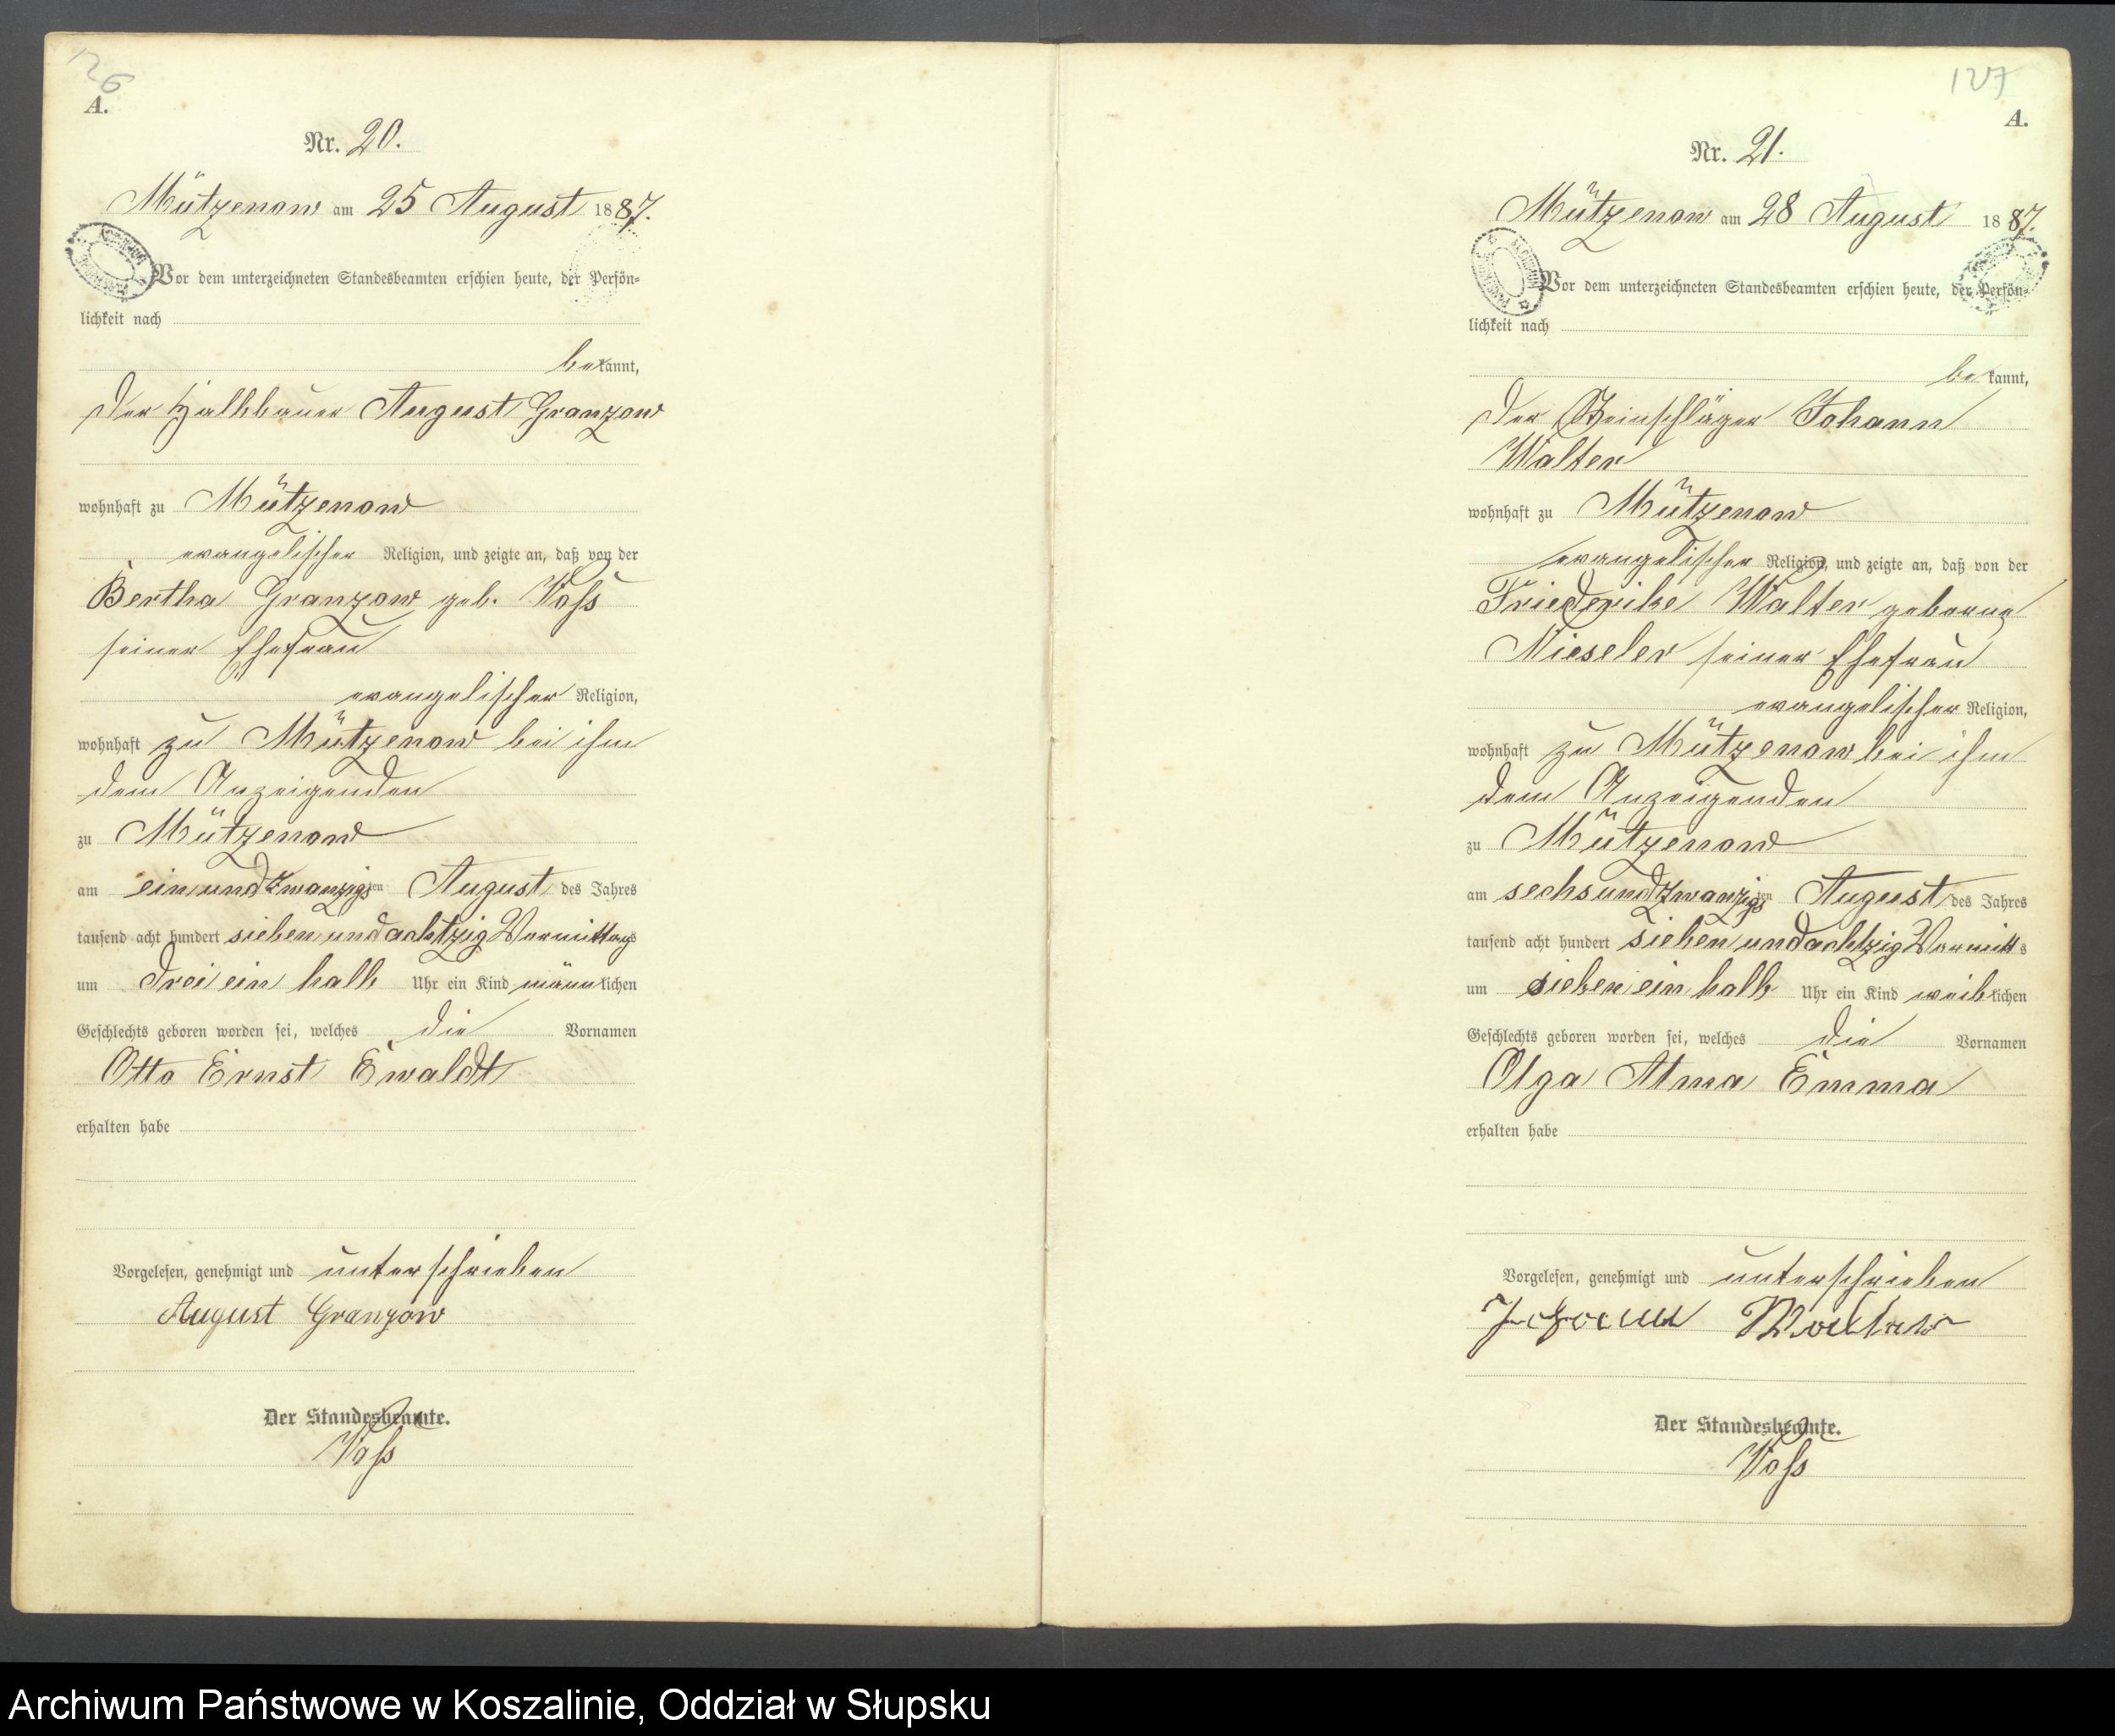 126
A.
Nr. 20.
Mützenow am 25 August 1887.
Vor dem unterzeichneten Standesbeamten erschien heute, der Persön-
lichkeit nach
bekannt,
der Halbbauer August Granzow
wohnhaft zu Mützenow
evangelischer Religion, und zeigte an, daß von der
Bertha Granzow geb. Voß
seiner Ehefrau
evangelischer Religion,
wohnhaft zu Mützenow bei ihm
dem Anzeigenden
zu Mützenow
am einundzwanzigsten August des Jahres
tausend acht hundert siebenundachtzig Vormittags
um drei ein halb Uhr ein Kind männlichen
Geschlechts geboren worden sei, welches die Vornamen
Otto Ernst Ewaldt
erhalten habe
Vorgelesen, genehmigt und unterschrieben
August Granzow
Der Standesbeamte.
Voß
127
A.
Nr. 21.
Mützenow am 28 August 1887.
Vor dem unterzeichneten Standesbeamten erschien heute, der Persön-
lichkeit nach
bekannt,
der Steinschläger Johann
Walter
wohnhaft zu Mützenow
evangelischer Religion, und zeigte an, daß von der
Friederike Walter geborne
Nieseler seiner Ehefrau
evangelischer Religion,
wohnhaft zu Mützenow bei ihm
dem Anzeigenden
zu Mützenow
am sechsundzwanzigsten August des Jahres
tausend acht hundert siebenundachtzig Vormitts
um sieben ein halb Uhr ein Kind weiblichen
Geschlechts geboren worden sei, welches die Vornamen
Olga Alma Emma
erhalten habe
Vorgelesen, genehmigt und unterschrieben
Johann Walter
Der Standesbeamte.
Voß
Archiwum Państwowe w Koszalinie, Oddział w Słupsku